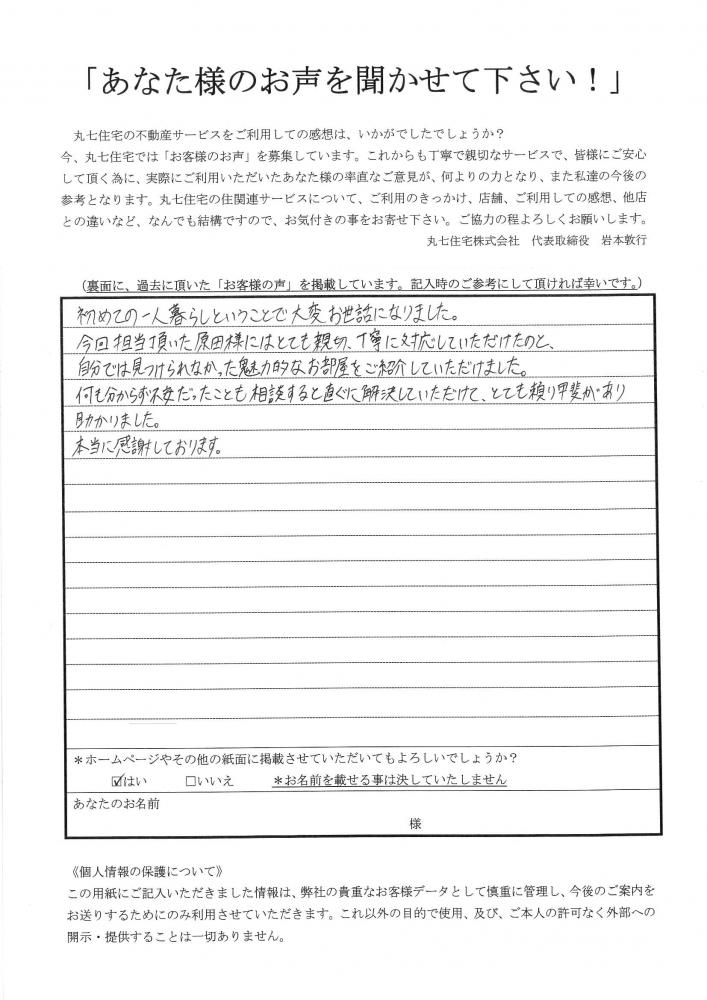 「あなた様のお声を聞かせて下さい！」
丸七住宅の不動産サービスをご利用しての感想は、いかがでしたでしょうか？
今、丸七住宅では「お客様のお声」を募集しています。これからも丁寧で親切なサービスで、皆様にご安心
して頂く為に、実際にご利用いただいたあなた様の率直なご意見が、何よりの力となり、また私達の今後の
参考となります。丸七住宅の住関連サービスについて、ご利用のきっかけ、店舗、ご利用しての感想、他店
との違いなど、なんでも結構ですので、お気付きの事をお寄せ下さい。ご協力の程よろしくお願いします。
丸七住宅株式会社　代表取締役　岩本敦行
（裏面に、過去に頂いた「お客様の声」を掲載しています。記入時のご参考にして頂ければ幸いです。）
初めての一人暮らしということで大変お世話になりました。
今回担当頂いた原田様にはとても親切、丁寧に対応していただけたのと、
自分では見つけられなかった魅力的なお部屋をご紹介していただけました。
何も分からず不安だったことも相談すると直ぐに解決していただけて、とても頼り甲斐があり
助かりました。
本当に感謝しております。
＊ホームページやその他の紙面に掲載させていただいてもよろしいでしょうか？
☑はい　□いいえ　＊お名前を載せる事は決していたしません
あなたのお名前
様
《個人情報の保護について》
この用紙にご記入いただきました情報は、弊社の貴重なお客様データとして慎重に管理し、今後のご案内を
お送りするためにのみ利用させていただきます。これ以外の目的で使用、及び、ご本人の許可なく外部への
開示・提供することは一切ありません。